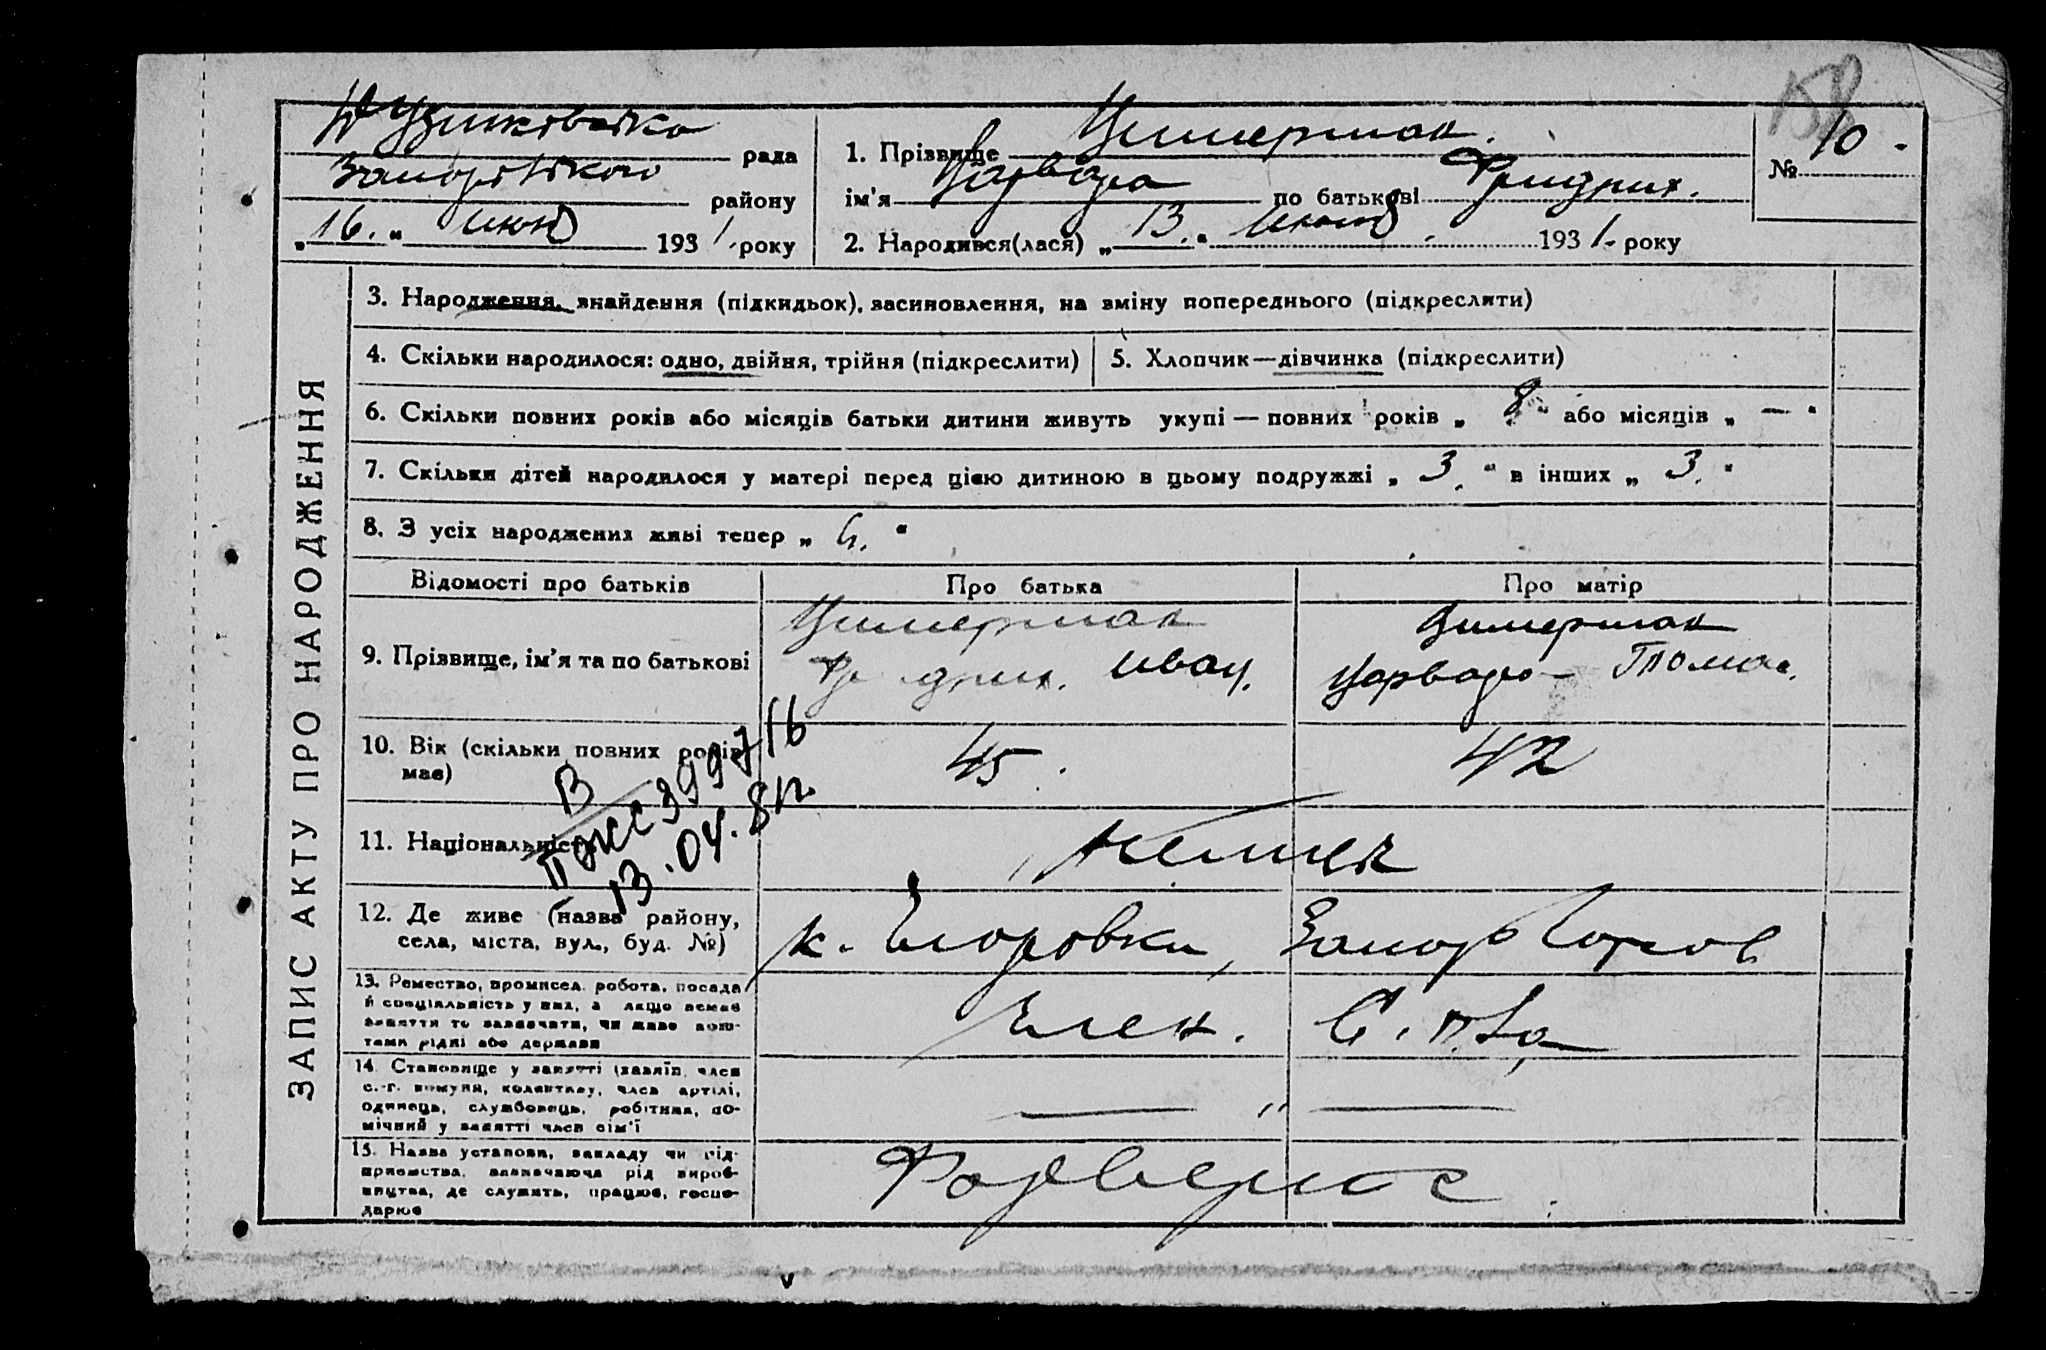 рада
Запорізького району
„16.“ июня 1931. року
1. Прізвище Цимерман.
ім'я Варвара по батькові Фридрих.
2. Народився(лася) „13.“ Июня 1931. року
158
№ 10.
ЗАПИС АКТУ ПРО НАРОДЖЕННЯ
3. Народження, знайдення (підкидьок), засиновлення, на зміну попереднього (підкреслити)
4. Скільки народилося: одно, двійня, трійня (підкреслити)
5. Хлопчик—дівчинка (підкреслити)
6. Скільки повних років або місяців батьки дитини живуть укупі — повних років „8“ або місяців „—“
7. Скільки дітей народилося у матері перед цією дитиною в цьому подружжі „3.“ в інших „3.“
8. З усіх народжених живі тепер „ “
Відомості про батьків Про батька Про матір
9. Прізвище, ім'я та по батькові
Цимерман
Фридрих. Иван.
Цимерман
Варвара
10. Вік (скільки повних років має) 45. 42
11. Національність Немцы
В
399716
13.04.8
12. Де живе (назва району,
села, міста, вул., буд. №)
к. Егоровка,
13. Ремество, промисел, робота, посада
й спеціальність у них, а якщо немає
заняття то зазначити, чи живе кош-
тами рідні або держави
Член. С.
14. Становище у занятті (хазяїн, член
с.-г. комуни, колективу, член артілі,
одинець, службовець, робітник, по-
мічний у занятті член сім'ї
— " —
15. Назва установи, закладу чи під-
приємства, зазначаюча рід вироб-
ництва, де служить, працює, госпо-
дарює